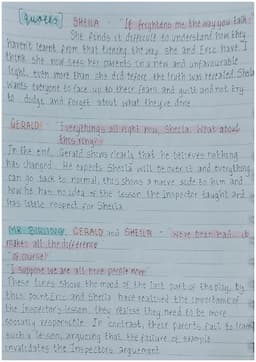 [quotes] SHEILA - "It frightens me the way you talk:"
She finds it difficult to understand how they
haven't learnt from that evening the way she and Eric have. I
think she now sees her parents in a new and unfavourable
light, even more than she did before the truth was revealed. Sheila
wants everyone to face up to their fears and guilt and not try
to dodge and forget about what they've done
GERALD: "Everything's all right now, Sheila. What about
this ring?"
In the end, Gerald shows clearly that he believes nothing
has changed. He expects Sheila will be over it and everything
can go back to normal, this shows a naive side to him and
how he has no idea of the lesson the inspector taught and
has little respect for Sheila
MR BIRLING, GERALD and SHEILA - "We've been had... it
makes all the difference"
"Of course!"
"I suppose we are all nice people now"
These lines show the mood of the last part of the play, by
this point Eric and Sheila have realised the importance of
the inspector's lesson, they realise they need to be more
socially responsible. In contrast, their parents fail to learn
such a lesson, arguing that the failure of example
invalidates the inspectors argument